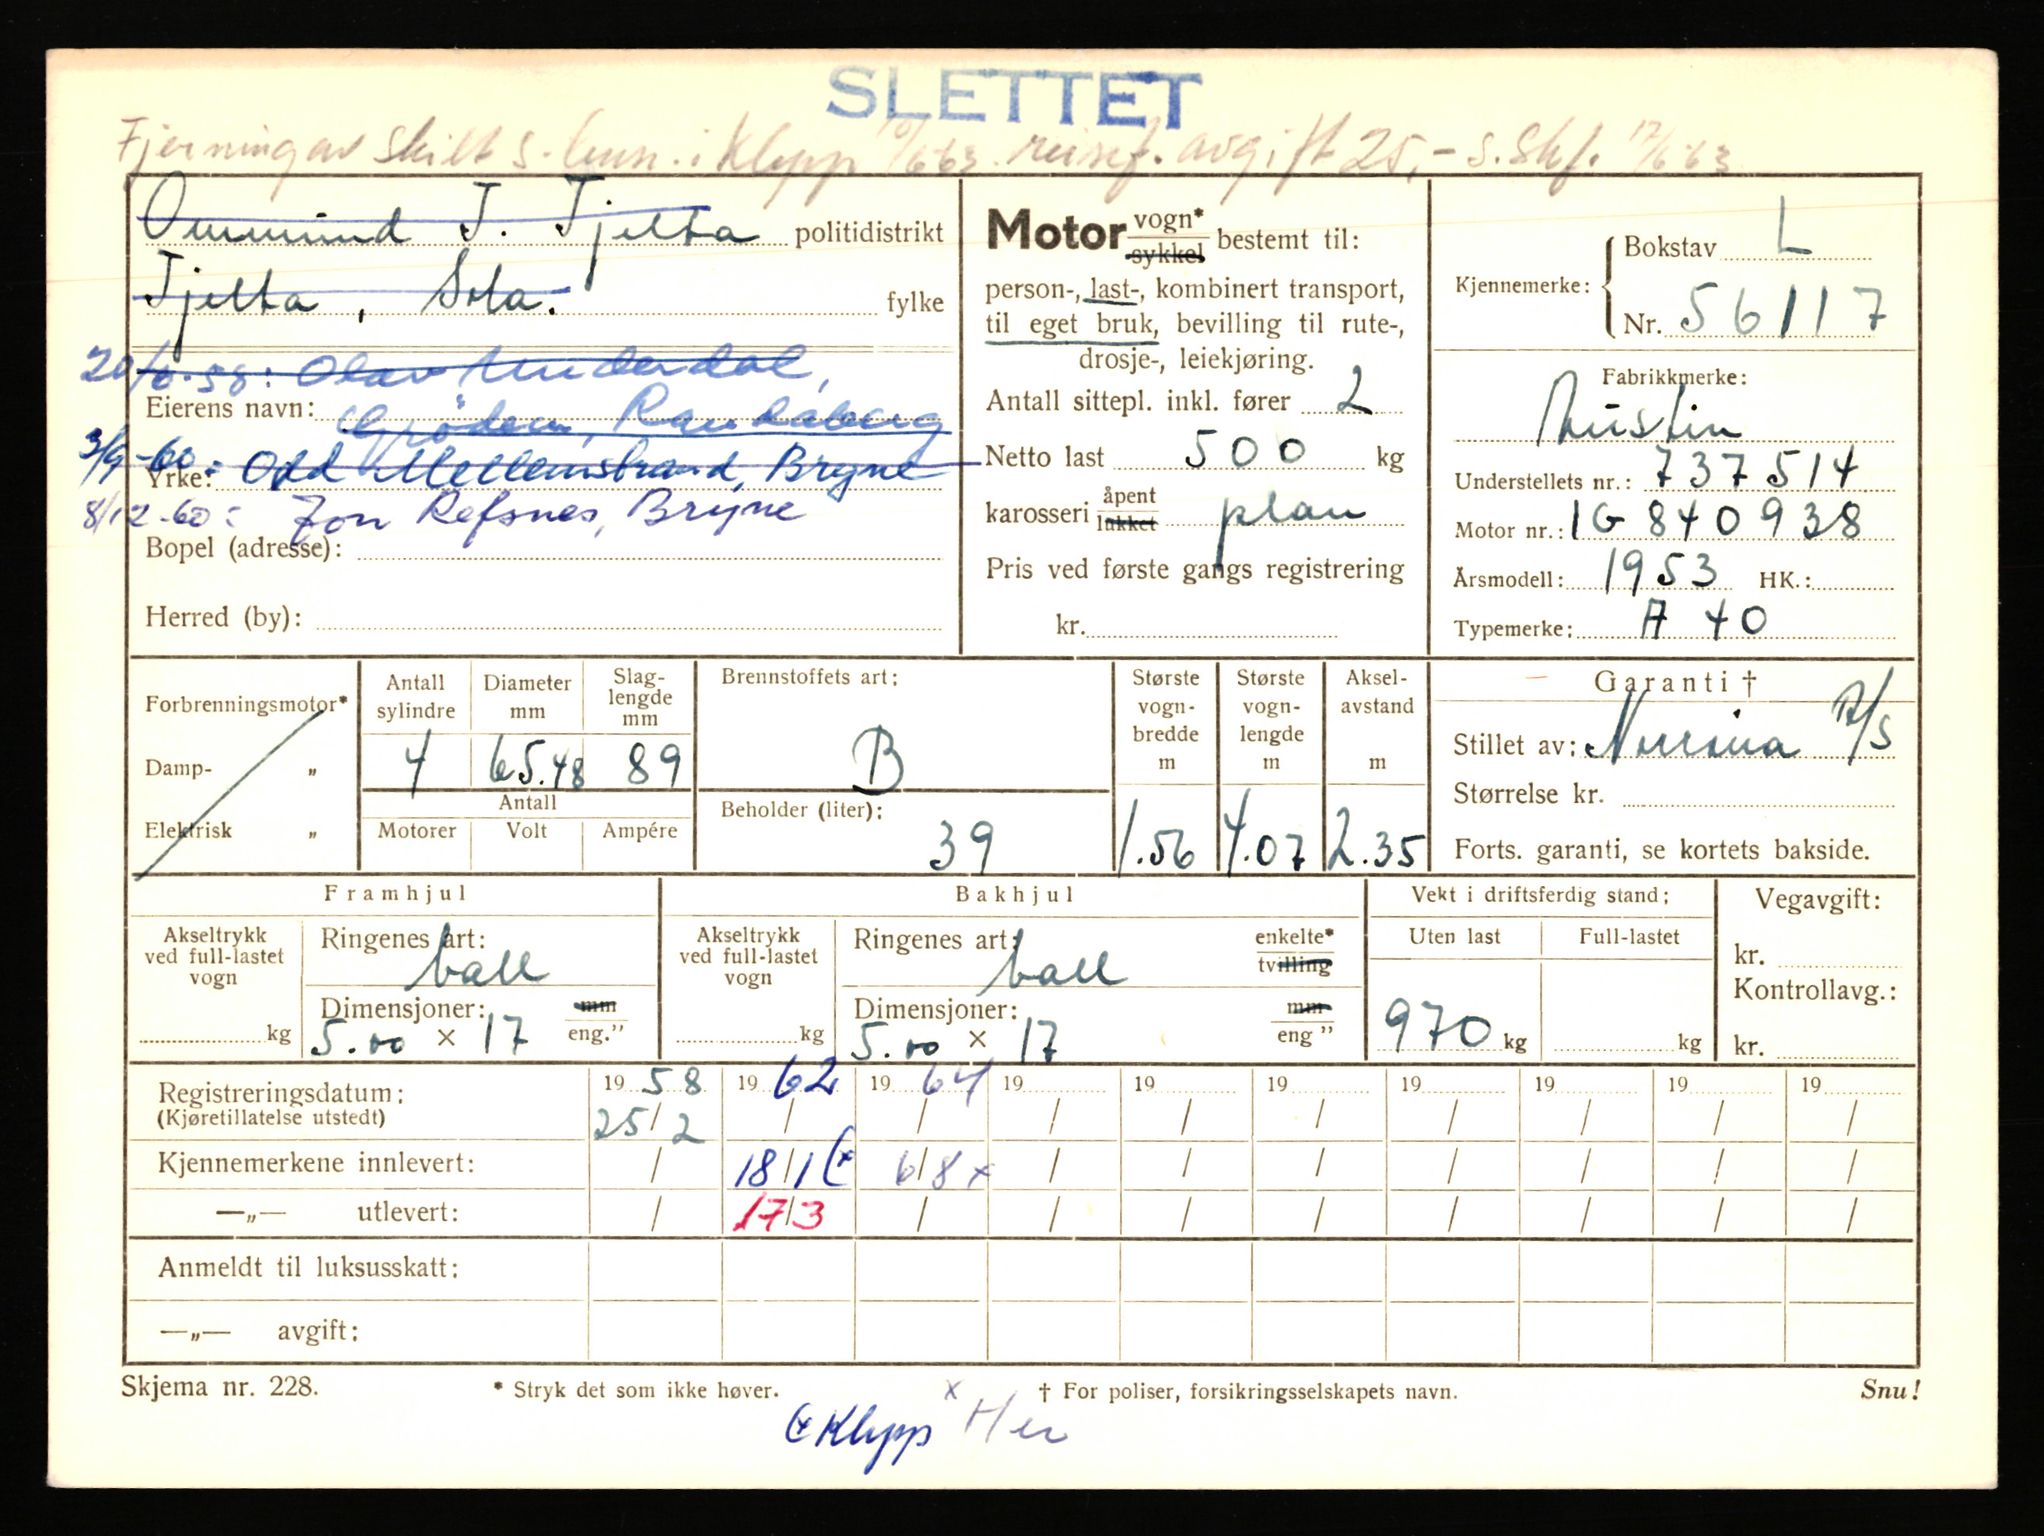 SLETTET
Fjerning av skilt s. lensm. i Klepp 10/6 63. reisef. avgift 25,- s. Skf. 17/6 63
Ommund T. Tjelta politidistrikt
Tjelta, Sola. fylke
20/6-58: Olav Underdal,
Eierens navn: Grödem, Randaberg
3/9-60: Odd Mellemstrand, Bryne
Yrke:
8/12-60: Jon Refsnes, Bryne
Bopel (adresse):
Herred (by):
Motor vogn* sykkel bestemt til:
person-, last-, kombinert transport,
til eget bruk, bevilling til rute-,
drosje-, leiekjøring.
Antall sittepl. inkl. fører 2
Netto last 500 kg
karosseri åpent lukket plan
Pris ved første gangs registrering
kr.
Kjennemerke: Bokstav L
Nr. 56117
Fabrikkmerke:
Austin
Understellets nr.: 737514
Motor nr.: 1G 840938
Årsmodell: 1953 HK.:
Typemerke: A 40
Forbrenningsmotor*
Damp- „
Elektrisk „
Antall sylindre Diameter mm Slag-lengde mm
4 65.48 89
Antall
Motorer Volt Ampére
Brennstoffets art:
B
Beholder (liter):
39
Største vogn-bredde m
1.56
Største vogn-lengde m
4.07
Aksel-avstand m
2.35
Garanti †
Stillet av: Norsina A/S
Størrelse kr.
Forts. garanti, se kortets bakside.
Framhjul
Akseltrykk ved full-lastet vogn
kg
Ringenes art:
ball
Dimensjoner: mm
5.00 × 17 eng."
Bakhjul
Akseltrykk ved full-lastet vogn
kg
Ringenes art: enkelte* tvilling
ball
Dimensjoner: mm
5.00 × 17 eng "
Vekt i driftsferdig stand:
Uten last Full-lastet
970 kg kg
Vegavgift:
kr.
Kontrollavg.:
kr.
Registreringsdatum: 19 58 19 62 19 64 19 19 19 19 19 19 19
(Kjøretillatelse utstedt) 25/2 / / / / / / / / /
Kjennemerkene innlevert: / 18/1 (x 6/8 x / / / / / / /
—„— utlevert: / 17/3 / / / / / / / /
Anmeldt til luksusskatt:
—„— avgift:
Skjema nr. 228. * Stryk det som ikke høver. † For poliser, forsikringsselskapets navn. Snu!
(x Klepp x Her